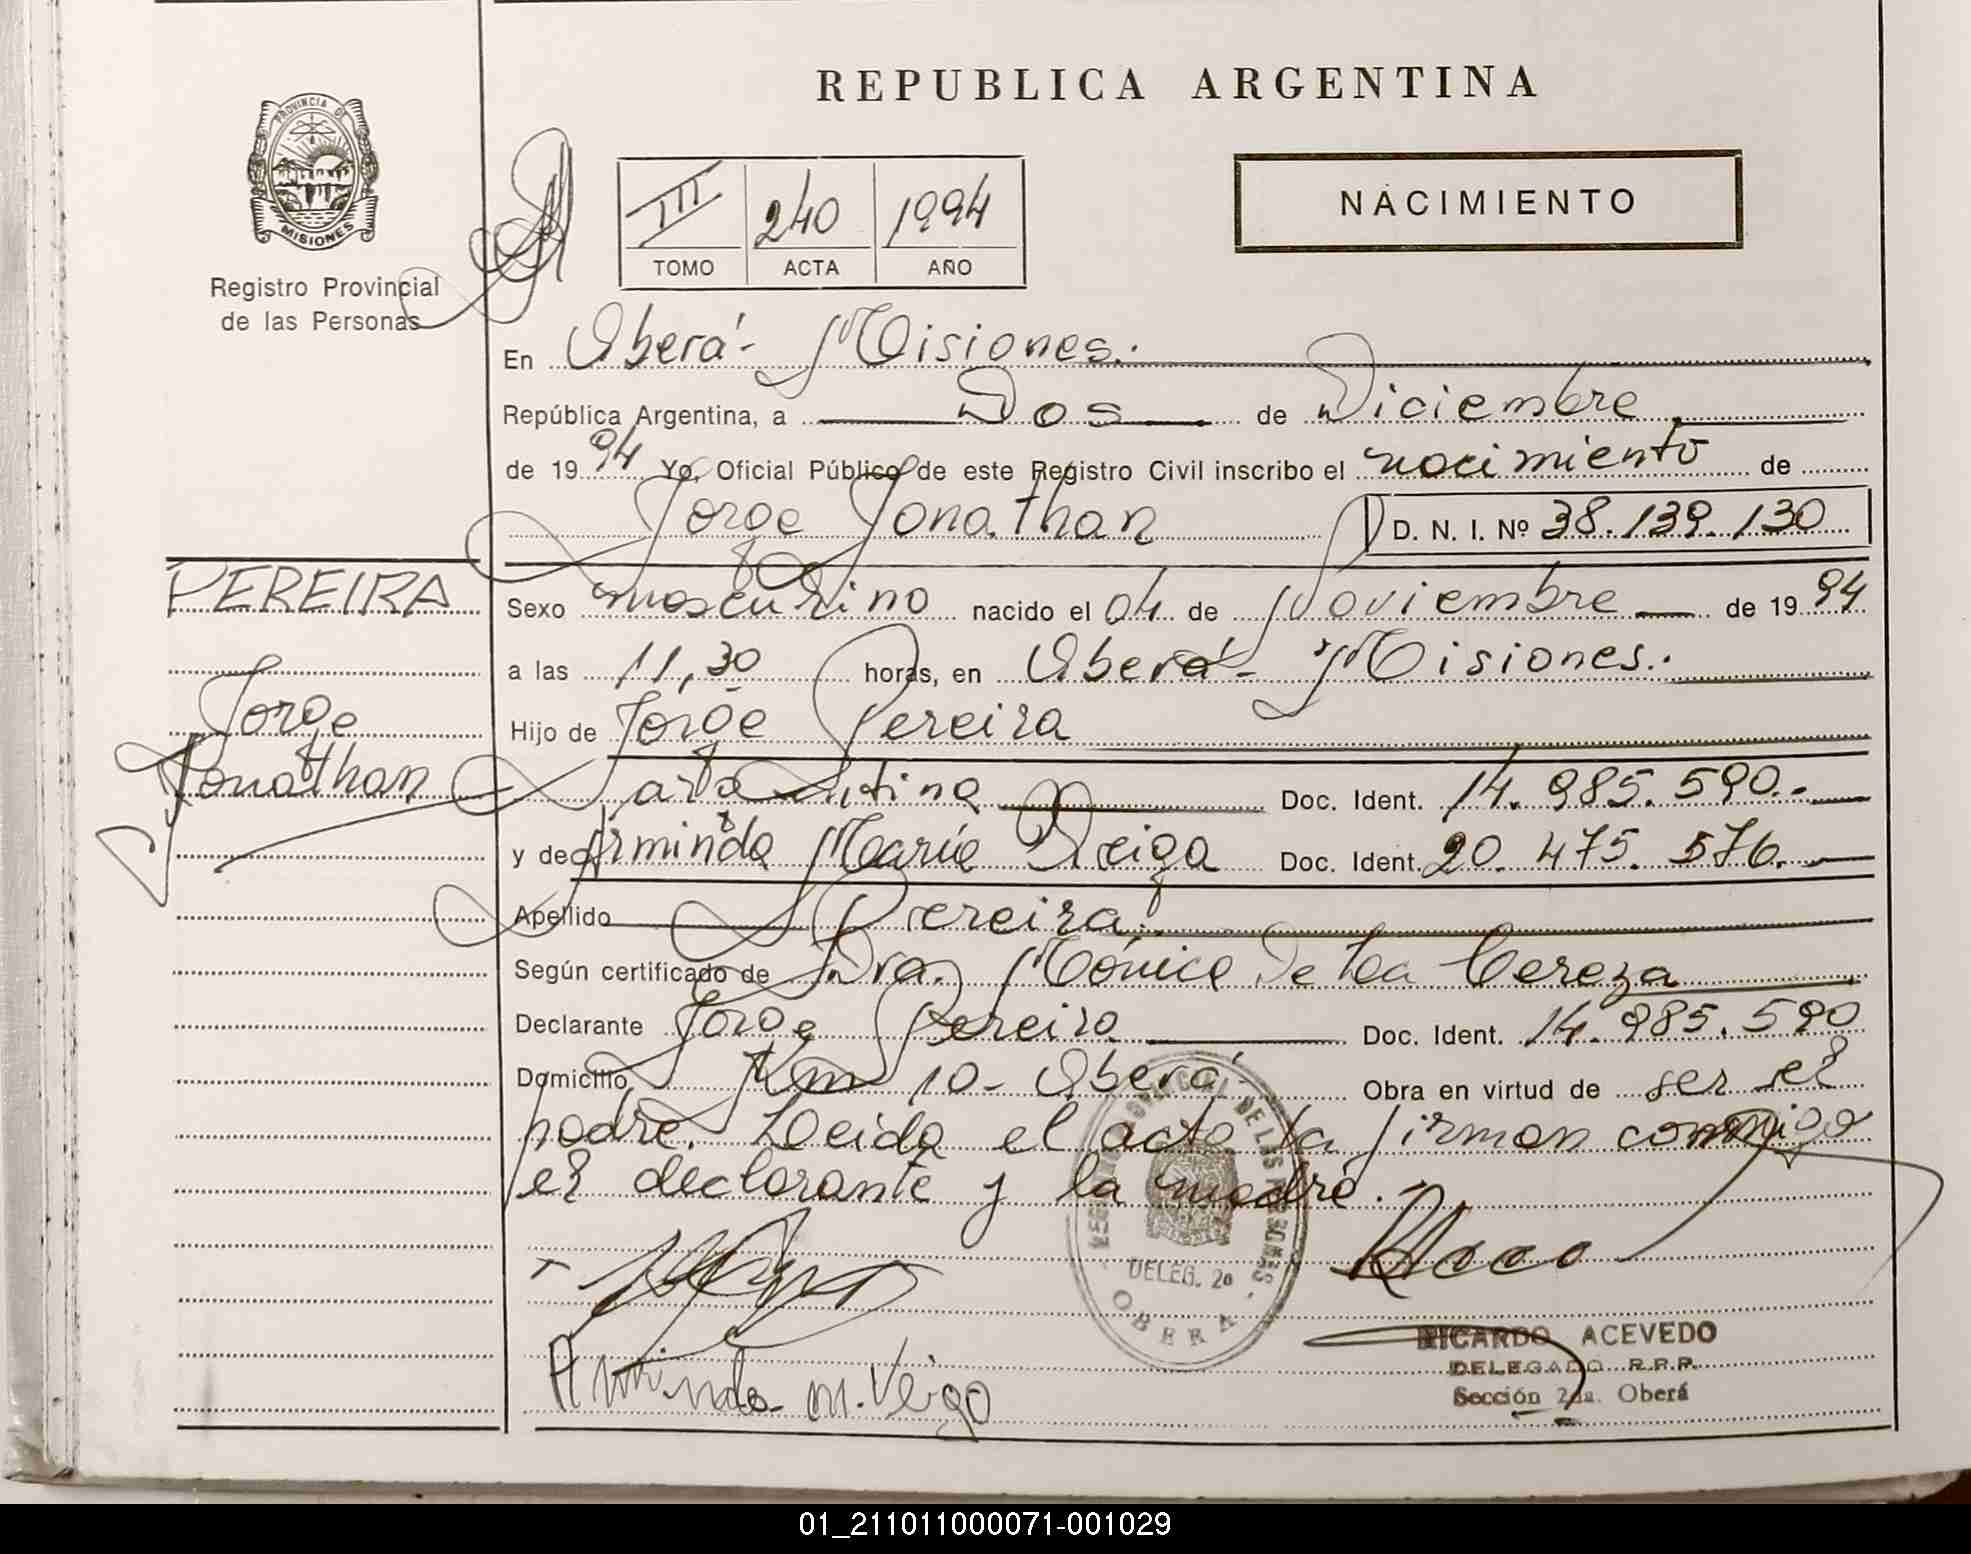 REPUBLICA ARGENTINA
PROVINCIA DE
MISIONES
Registro Provincial
de las Personas
III 240 1994
TOMO ACTA AÑO
NACIMIENTO
En Oberá - Misiones.
República Argentina, a Dos de Diciembre
de 1994 Yo, Oficial Público de este Registro Civil inscribo el nacimiento de
Jorge Jonathan D. N. I. Nº 38.139.130
PEREIRA
Jorge
Jonathan
Sexo masculino nacido el 04 de Noviembre de 1994
a las 11,30 horas, en Oberá - Misiones.
Hijo de Jorge Pereira
Doc. Ident. 14.985.590.-
y de Arminda María Veiga Doc. Ident. 20.475.576.
Apellido Pereira
Según certificado de Dra. Mónica De La Cereza
Declarante Jorge Pereira Doc. Ident. 14.985.590
Domicilio Km 10 - Oberá Obra en virtud de ser el
padre. Leida el acta la firman conmigo
el declarante y la madre.
REGISTRO PROVINCIAL DE LAS PERSONAS
DELEG. 2a
OBERA
Arminda M. Veiga
RICARDO ACEVEDO
DELEGADO R.P.P.
Sección 2da. Oberá
01_211011000071-001029